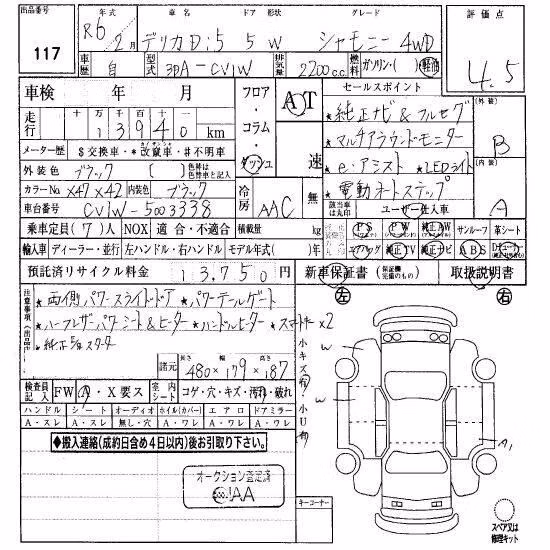 出品番号 117
年式 R6年 2月 車名 デリカD:5 ドア 形状 5W グレード シャモニー 4WD 評価点 4.5
車歴 自 型式 3DA-CV1W 排気量 2200c.c. 燃料 ガソリン・( ) 軽油
車検 年 月 フロア・コラム・ダッシュ AT 速 セールスポイント
走行 十万千百十一 13940 km
★純正ナビ&フルセグ 外装 B
メーター歴 $交換車・*改竄車・#不明車 ★マルチアラウンドモニター
外装色 ブラック [ ] 色替は色替車と記入 ★e-アシスト ★LEDライト 内装 A
カラーNo X47×X42 内装色 ブラック 冷房 AAC 無 ★電動ネートステップ
車台番号 CV1W-5003338 該当車は丸印 ユーザー仕入車
乗車定員 (7)人 NOX 適合・不適合 積載量 kg PS PW 純正AW サンルーフ 革シート
輸入車 ディーラー・並行 左ハンドル・右ハンドル モデル年式( )年 エアバッグ 純正TV 純正ナビ ABS
預託済リサイクル料金 13,750円 新車保証書 (保証継続可能のもの) 取扱説明書
注意事項 ★両側パワースライドドア ★パワーテールゲート 左 右
★ハーフレザーパワーシート&ヒーター ★ハンドルヒーター ★スマートキー×2
★純正S/スターター
諸元 長さ 480 × 幅 179 × 高さ 187
小キズ有 小U有
W
W
検査員記入 FW A・X要ス 室内シート コゲ・穴・キズ・汚れ・破れ
ハンドル シート オーディオ ホイル(カバー) エアロ ドアミラー
A・スレ A・スレ 無し・穴 A・ワレ A・ワレ A・ワレ
◆搬入連絡(成約日含め4日以内)後お引取り下さい。
オークション査定済
JAA
キーコーナー
スペア又は修理キット